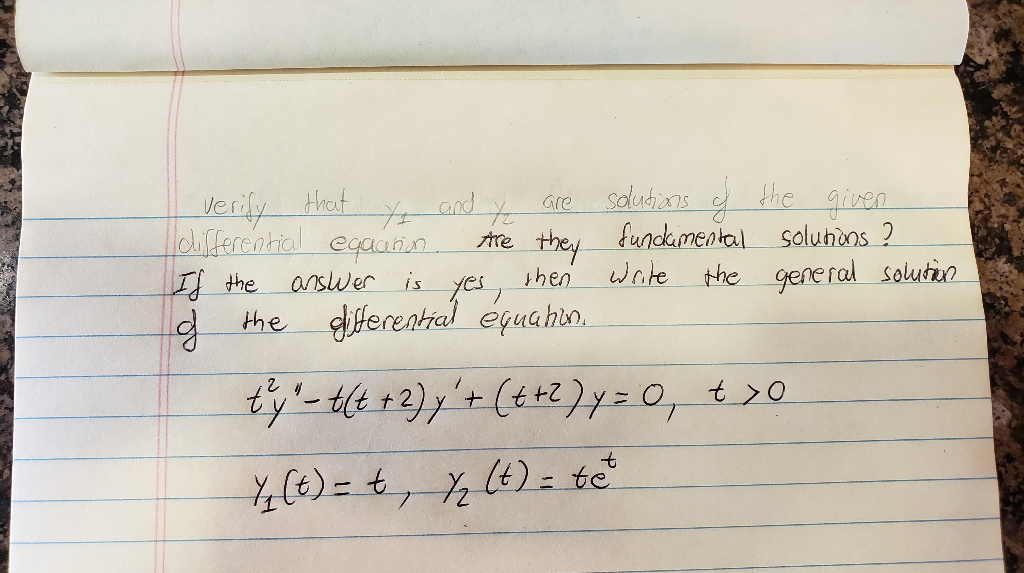 verify that y₁ and y₂ are solutions of the given
differential eqaation. Are they fundamental solutions?
If the answer is yes, then write the general solution
of the differential equation.
t²y" - t(t+2)y' + (t+2)y = 0, t > 0
y₁(t) = t, y₂(t) = teᵗ